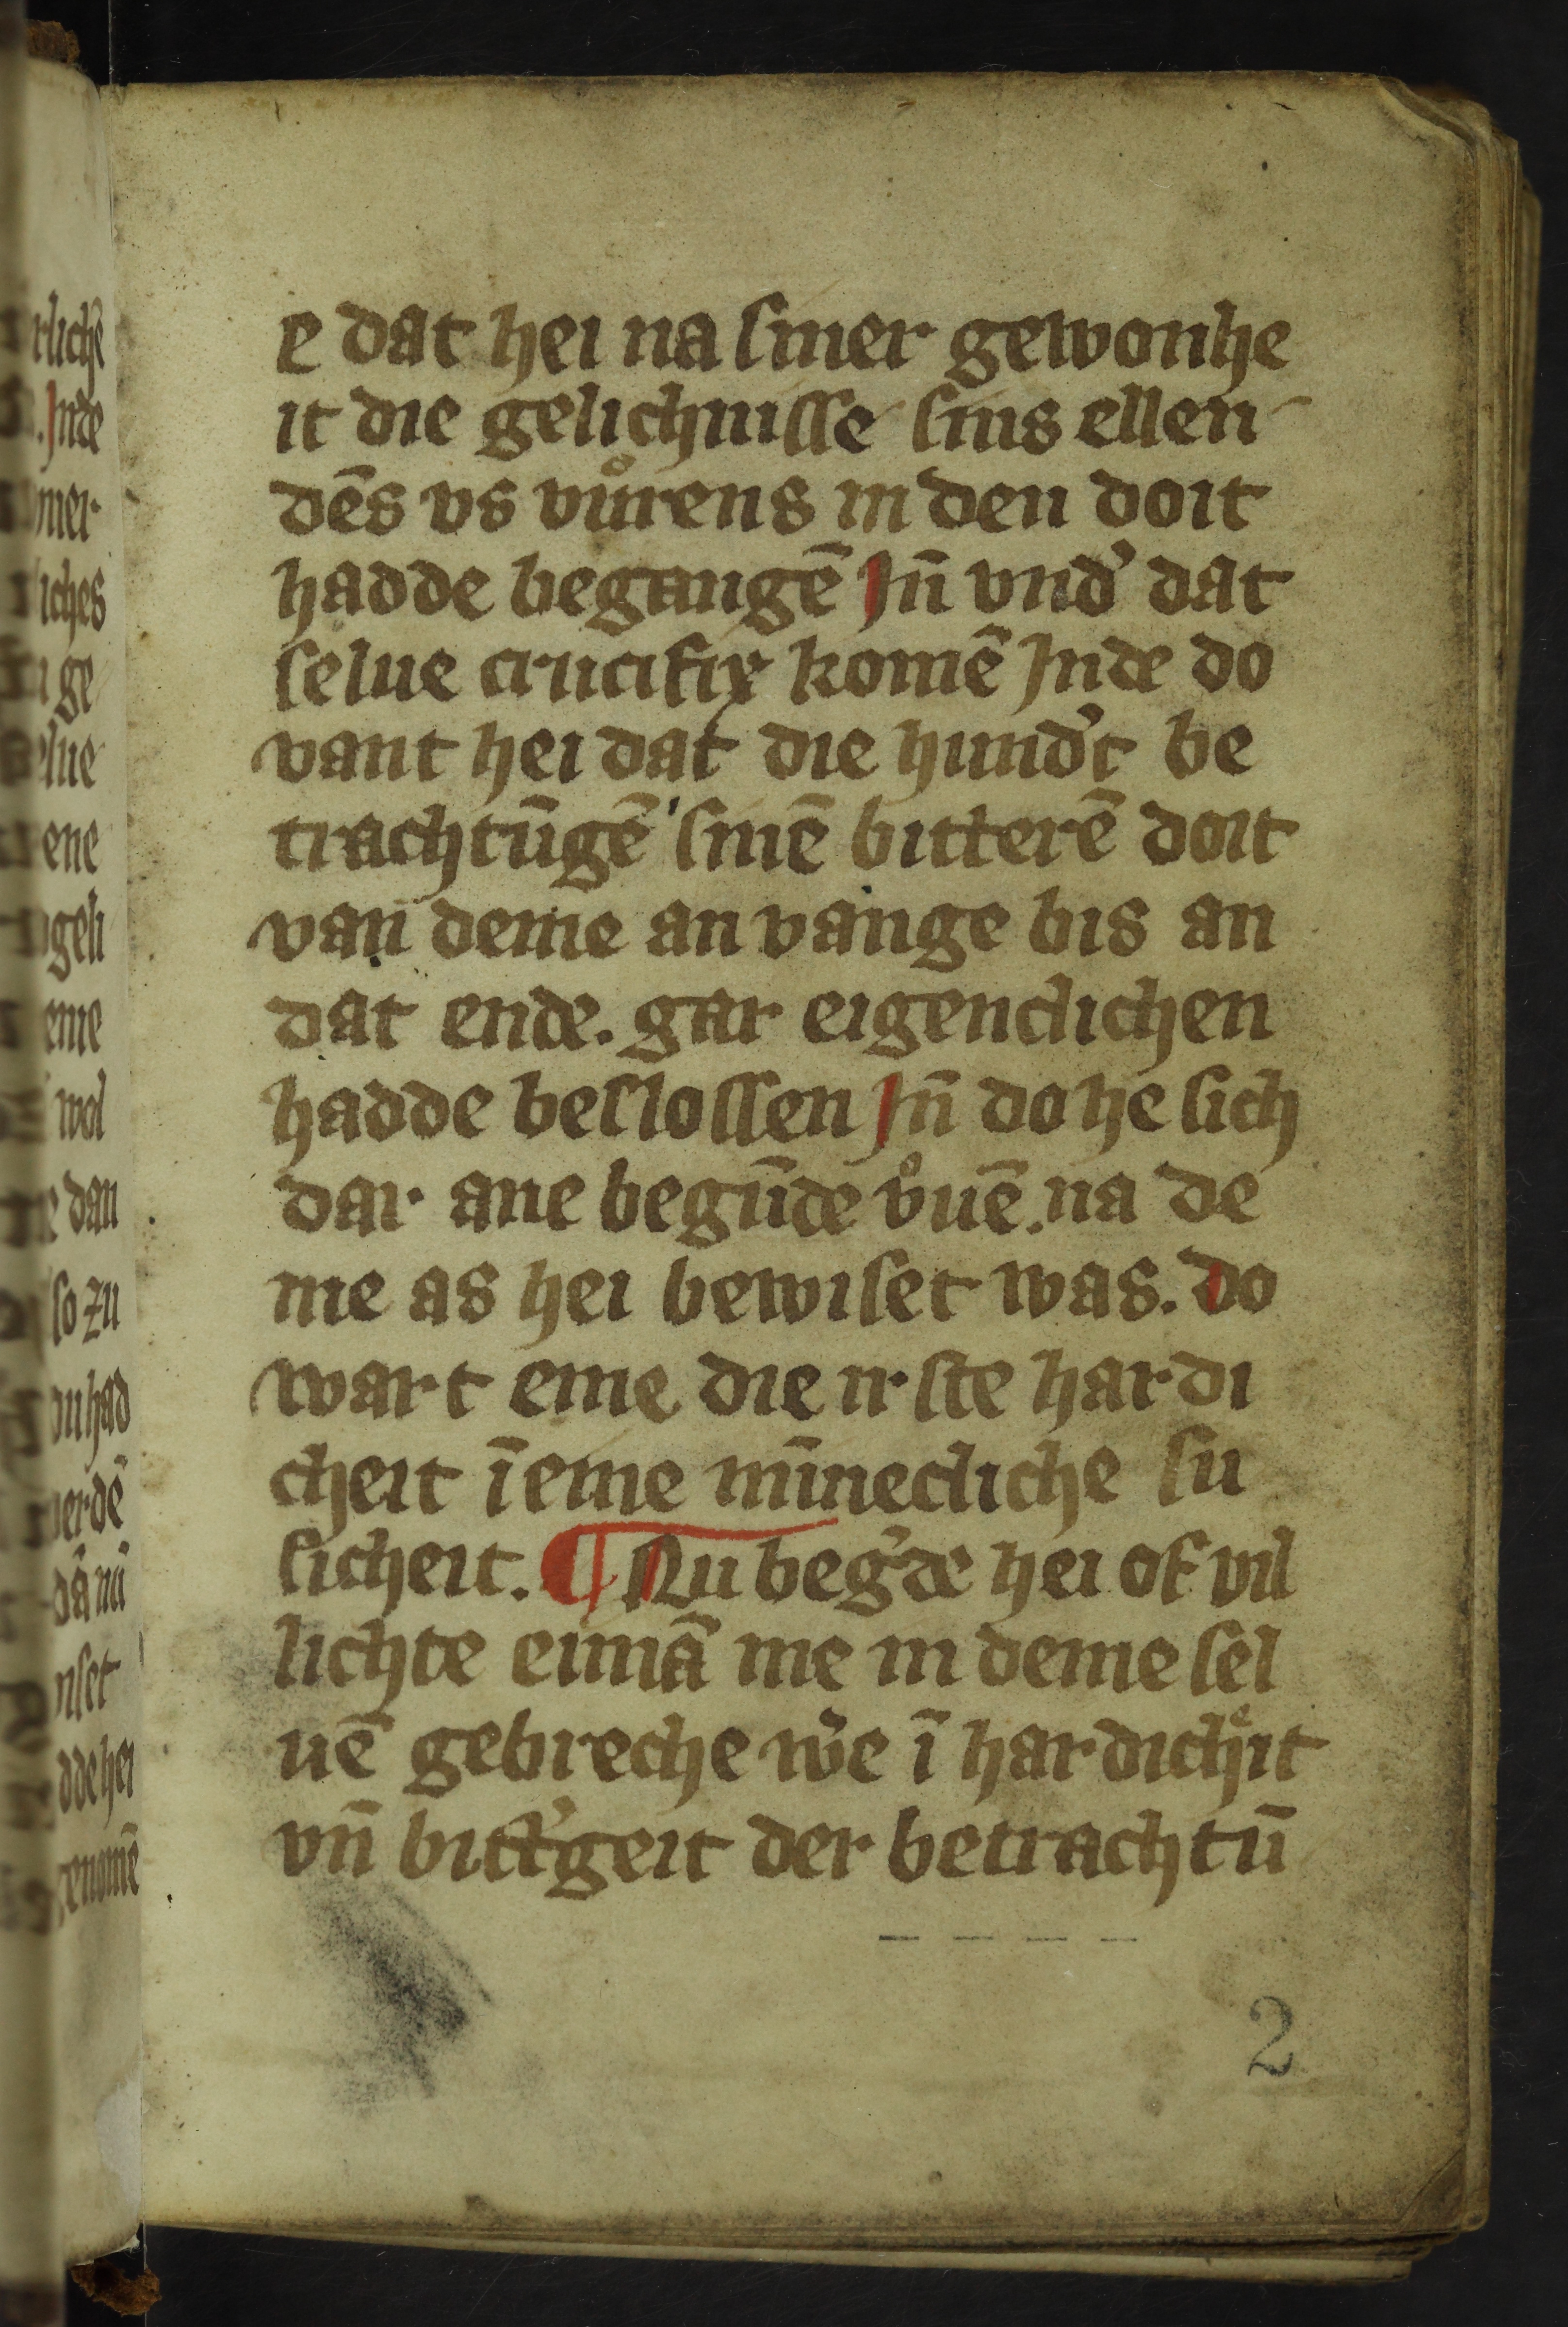 e dat hei na siner gewonhe
it die gelichnisse sins ellen
dēs vs vůrens in den doit
hadde begangē Jn̄ vnd' dat
selue crucifix komē Jnde do
vant hei dat die hund't be
trachtūgē sinē bitterē doit
van deme an vange bis an
dat ende. gar eigenclichen
hadde beslossen Jn̄ do he sich
dar ane begūde v̊uē. na de
me as hei bewiset was. do
wart eme die irste hardi
cheit ī eme mīnecliche su
sicheit. ¶ Nu beg'de hei of vil
lichte eimā me in deme sel
uē gebreche w'e ī hardicheit
vn̄ bitt'geit der betrachtū
2